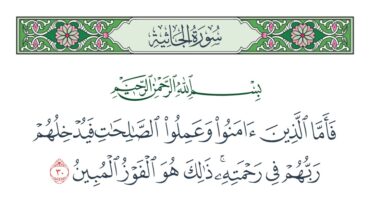 سُورَةُ الجَاثِيَةِ
بِسْمِ اللَّهِ الرَّحْمَٰنِ الرَّحِيمِ
فَأَمَّا الَّذِينَ ءَامَنُوا۟ وَعَمِلُوا۟ الصَّٰلِحَٰتِ فَيُدْخِلُهُمْ
رَبُّهُمْ فِى رَحْمَتِهِۦ ۚ ذَٰلِكَ هُوَ الْفَوْزُ الْمُبِينُ ٣٠